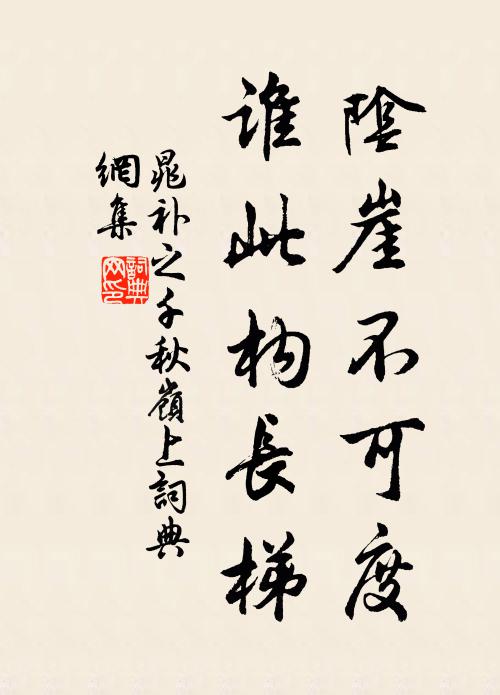 陰崖不可度
誰此构長梯
晁补之千秋嶺上詞典
網集
詞典
网印